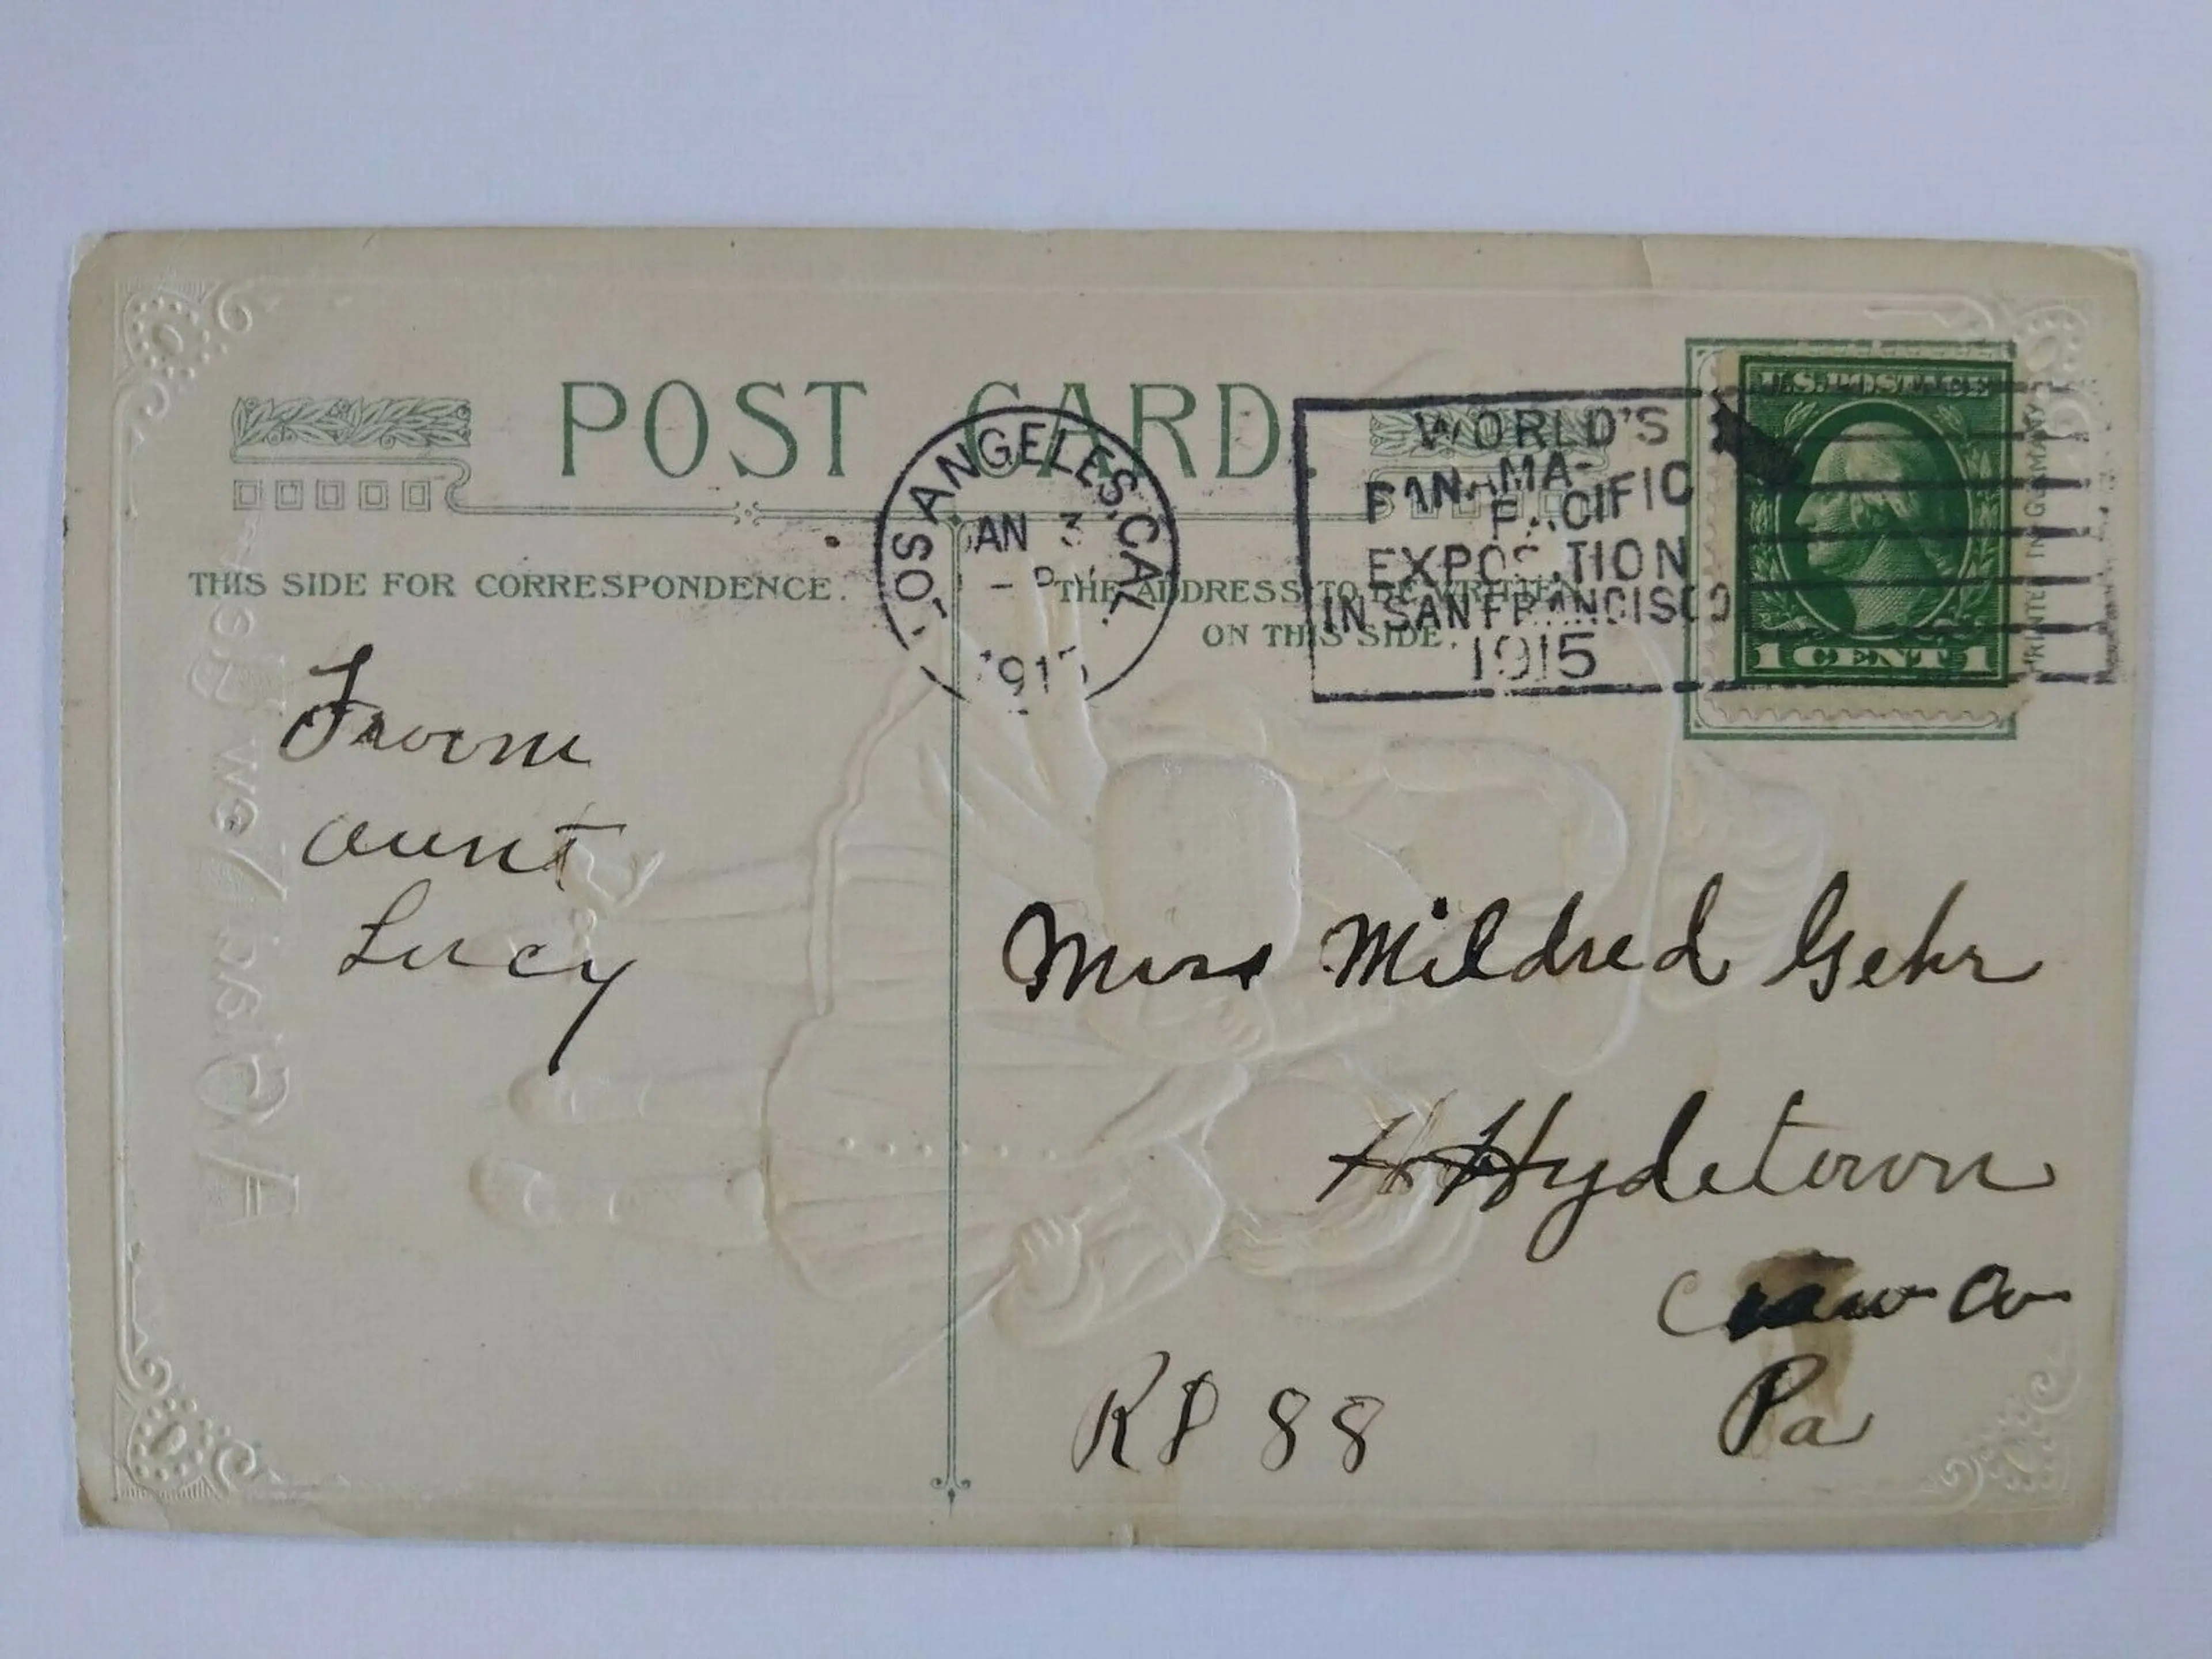 POST CARD
THIS SIDE FOR CORRESPONDENCE.
THE ADDRESS TO BE WRITTEN
ON THIS SIDE.
LOS ANGELES, CAL.
JAN 3
191
WORLD'S
PANAMA-
PACIFIC
EXPOSITION
IN SAN FRANCISCO
1915
U.S. POSTAGE
1 CENT 1
PRINTED IN GERMANY
From
aunt
Lucy
Miss Mildred Gehr
Hydetown
Craw Co
Pa
88